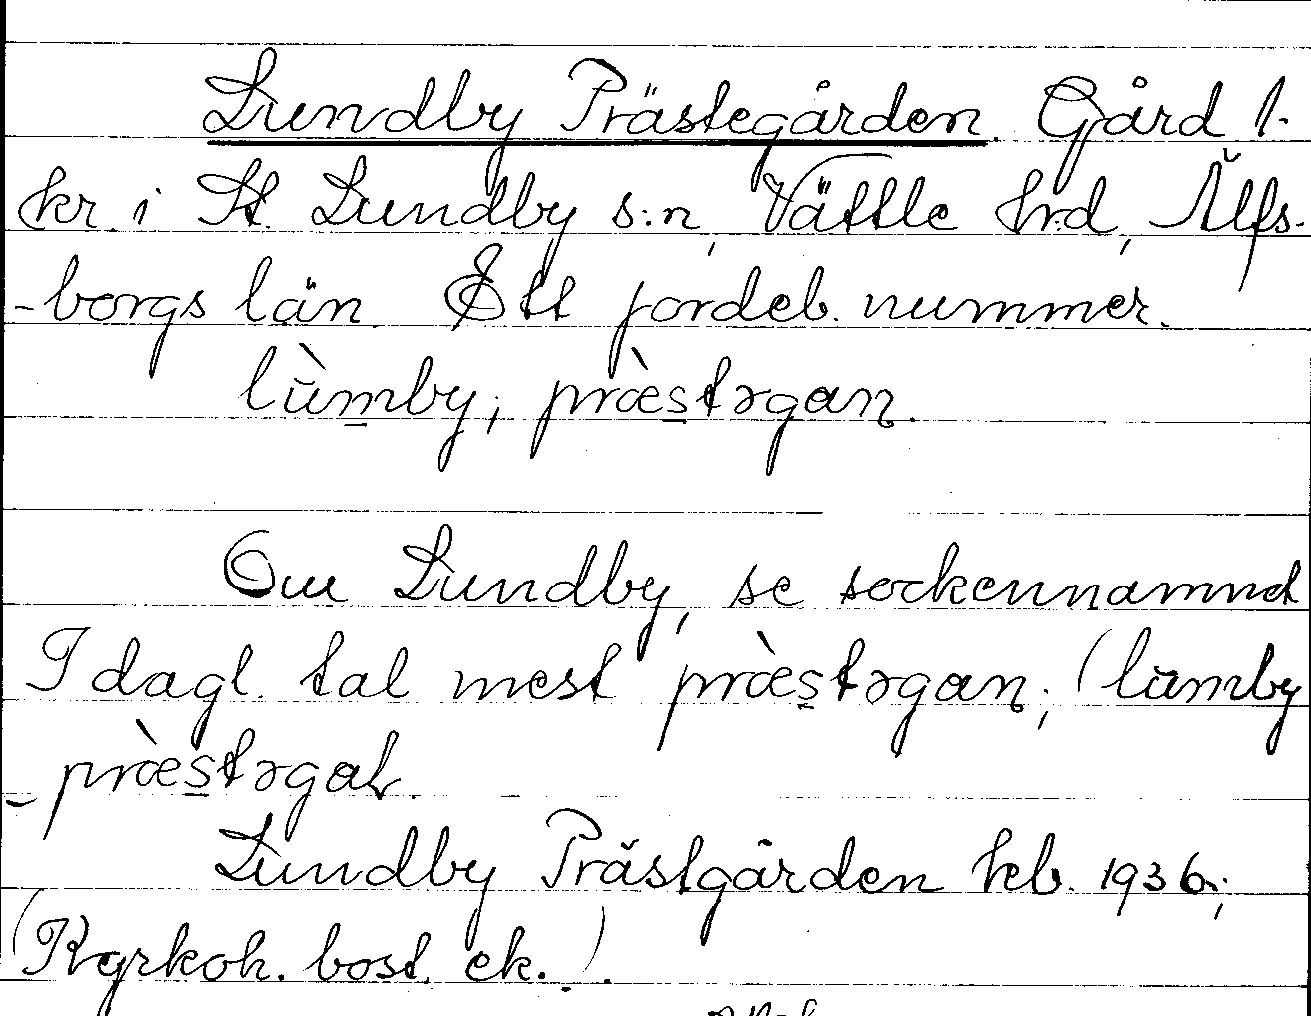 Lundby Prästegården. Gård 1.
kr. i St. Lundby s:n, Vättle hrd, Älfs-
-borgs län. Ett jordeb. nummer.
lùmby; præ̀stəgan.
Om Lundby, se sockennamnet
I dagl. tal mest præ̀stəgan; (lumby
-præ̀stəgaḷ.
Lundby Prästgården kb. 1936;
(Kyrkoh. bost. ek.).